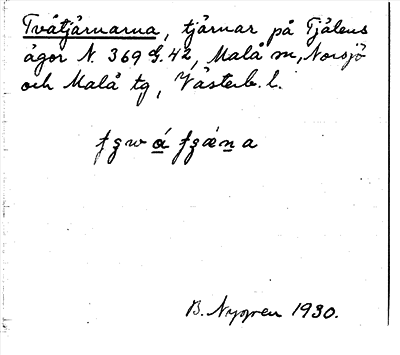 Tvåtjärnarna, tjärnar på Tjålens
ägor N. 369 G.42, Malå sn, Norsjö
och Malå tg, Västerb. l.
B. Nygren 1930.